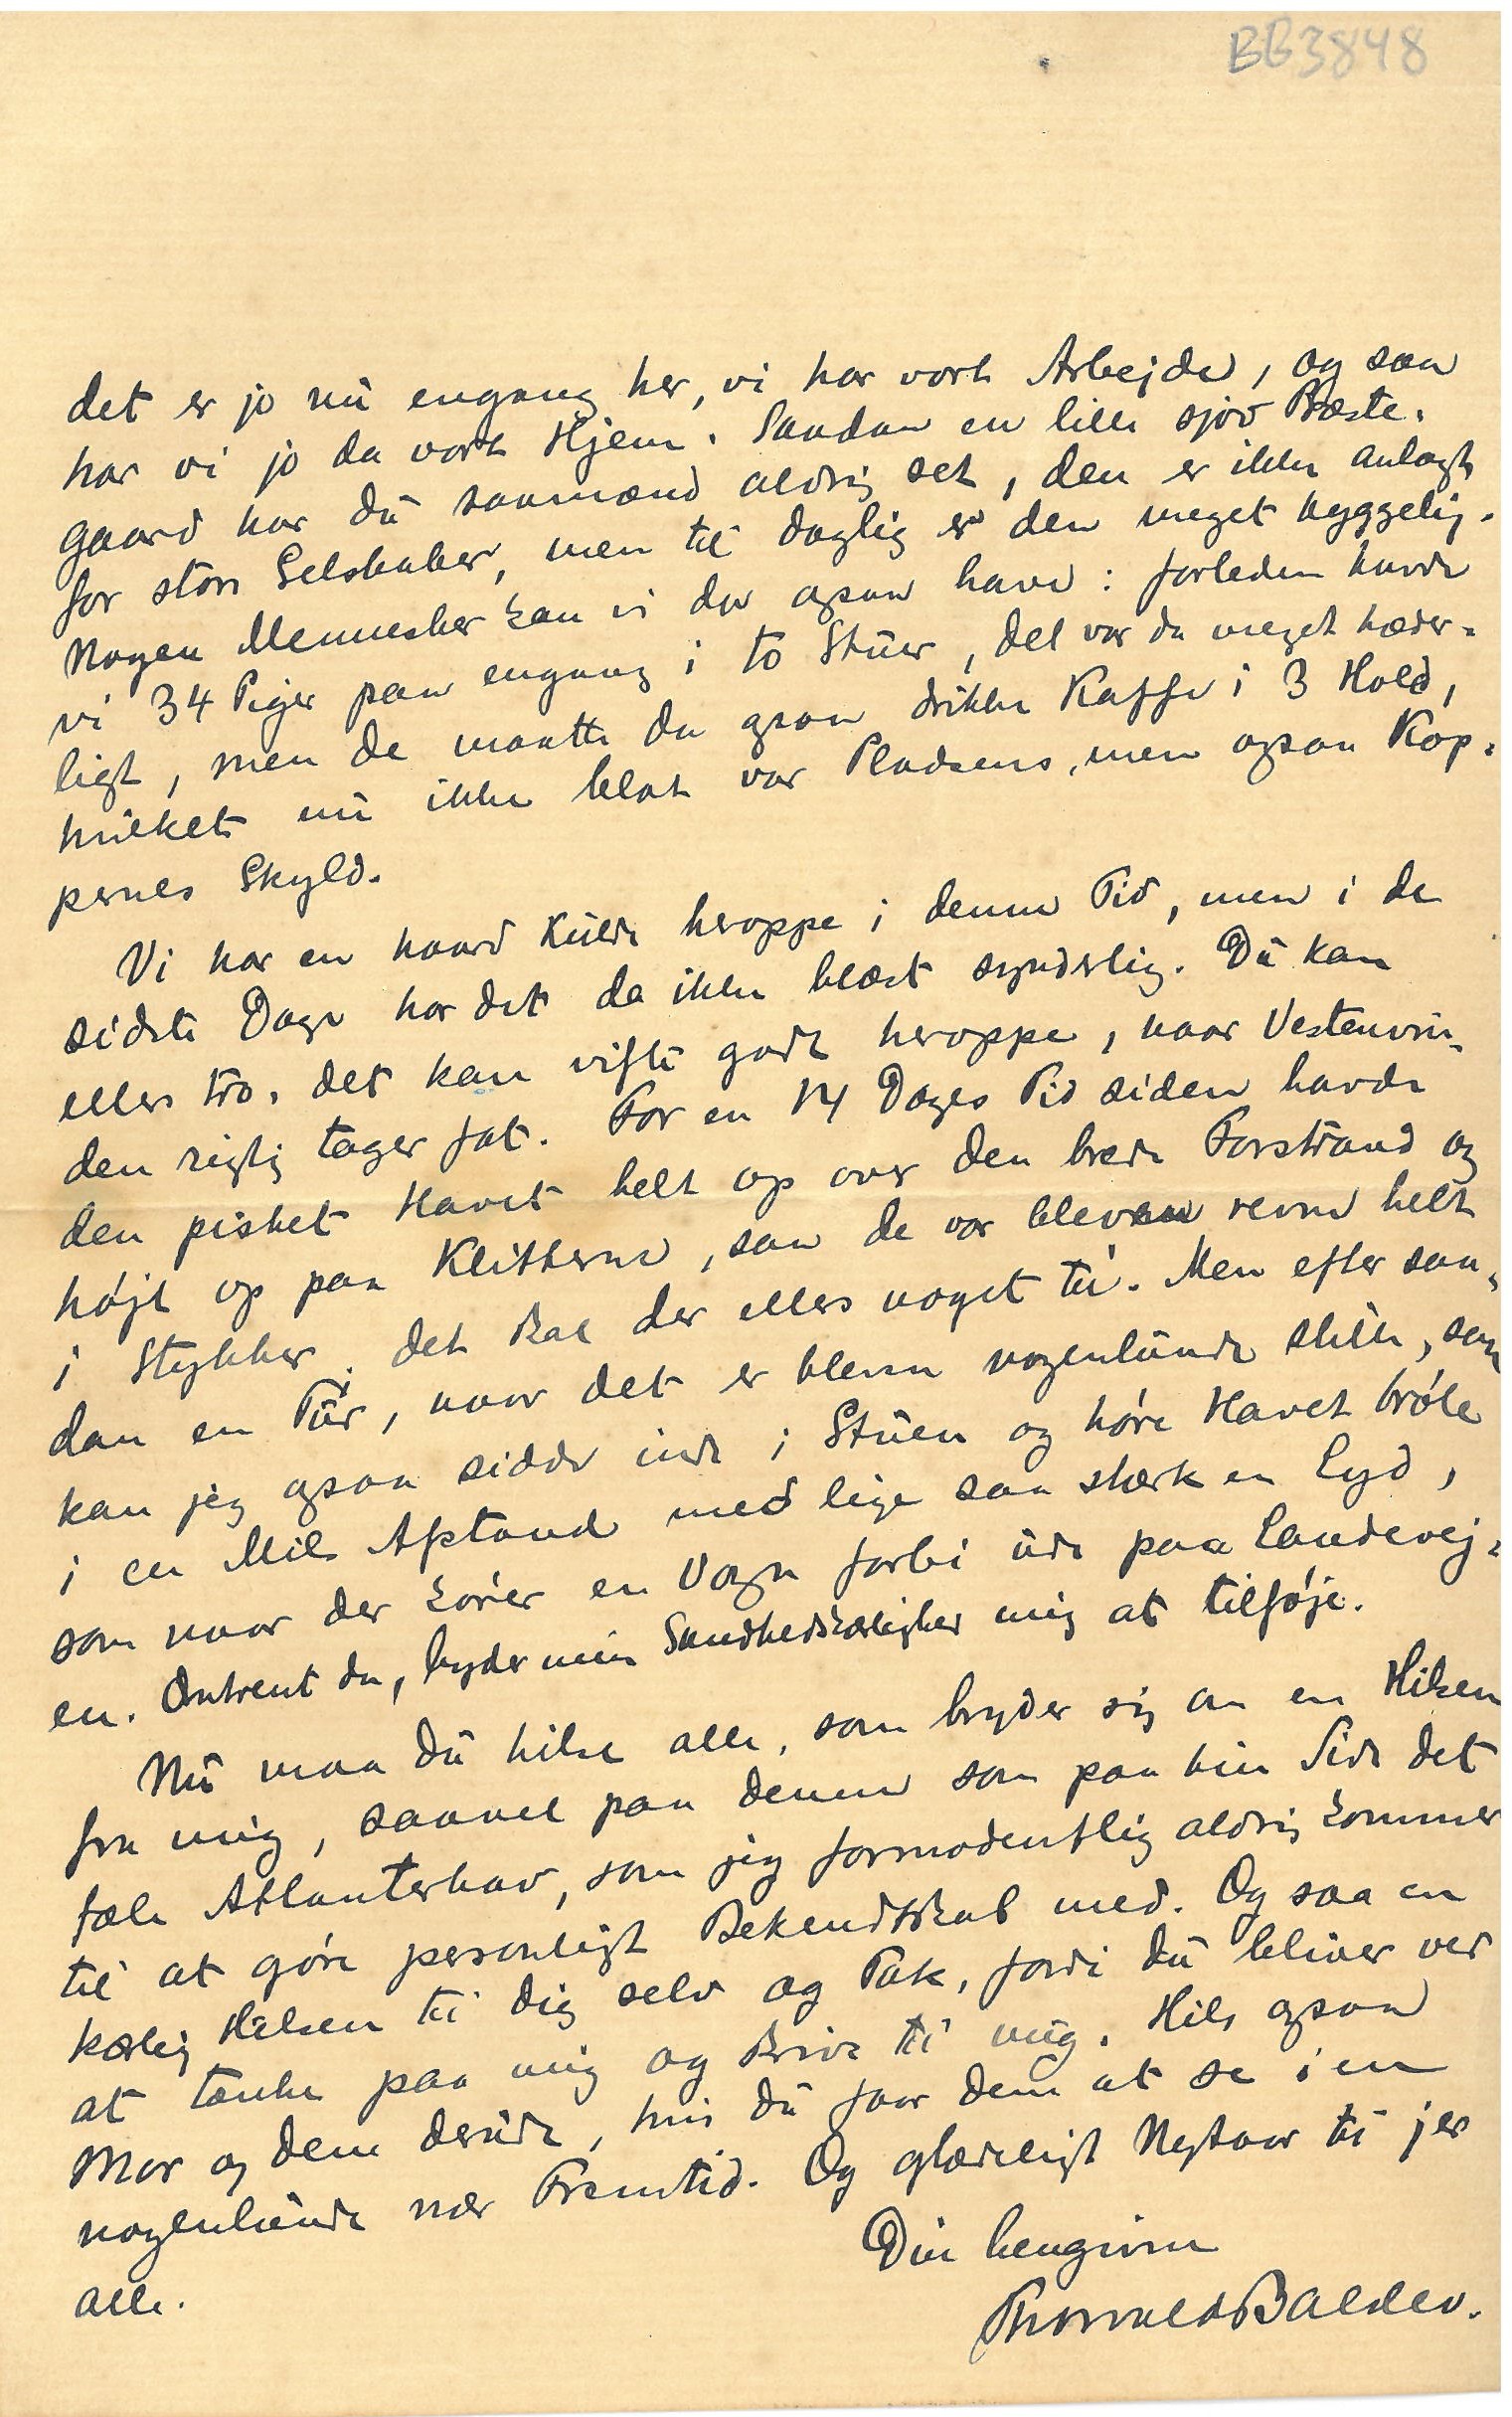 BB3848
det er jo nu engang her, vi har vort Arbejde, og saa
har vi jo da vort Hjem. Saadan en lille sjov Præste-
gaard har du saamænd aldrig set, den er ikke anlagt
for store Selskaber, men til daglig er den meget hyggelig.
Nogen Mennesker kan vi da ogsaa have: forleden havde
vi 34 Piger paa engang i to Stuer, det var da meget hæder-
ligt, men de maatte da ogsaa drikke Kaffe i 3 Hold,
hvilket nu ikke blot var Pladsens, men ogsaa Kop-
pernes Skyld.
Vi har en haard Kulde heroppe i denne Tid, men i de
sidste Dage har det da ikke blæst synderlig. Du kan
ellers tro, det kan vifte godt heroppe, naar Vestenvin-
den rigtig tager fat. For en 14 Dages Tid siden havde
den pisket Havet helt op over den brede Forstrand og
højt op paa Klitterne, saa de var bleven revne helt
i Stykker, det skal der ellers noget til. Men efter saa-
dan en Tur, naar det er bleven nogenlunde stille, saa
kan jeg ogsaa sidde inde i Stuen og høre Havet brøle
i en Mils Afstand med lige saa stærk en Lyd,
som naar der kører en Vogn forbi ude paa Landevej-
en. Omtrent da, byder min Sandhedskærlighed mig at tilføje.
Nu maa du hilse alle, som bryder sig om en Hilsen
fra mig, saavel paa denne som paa hin Side det
fæle Atlanterhav, som jeg formodentlig aldrig kommer
til at gøre personligt Bekendtskab med. Og saa en
kærlig Hilsen til dig selv og Tak, fordi du bliver ved
at tænke paa mig og skrive til mig. Hils ogsaa
Mor og dem derude, hvis du faar dem at se i en
nogenlunde nær Fremtid. Og glædeligt Nytaar til jer
alle.
Din hengivne
Thorvald Balslev.